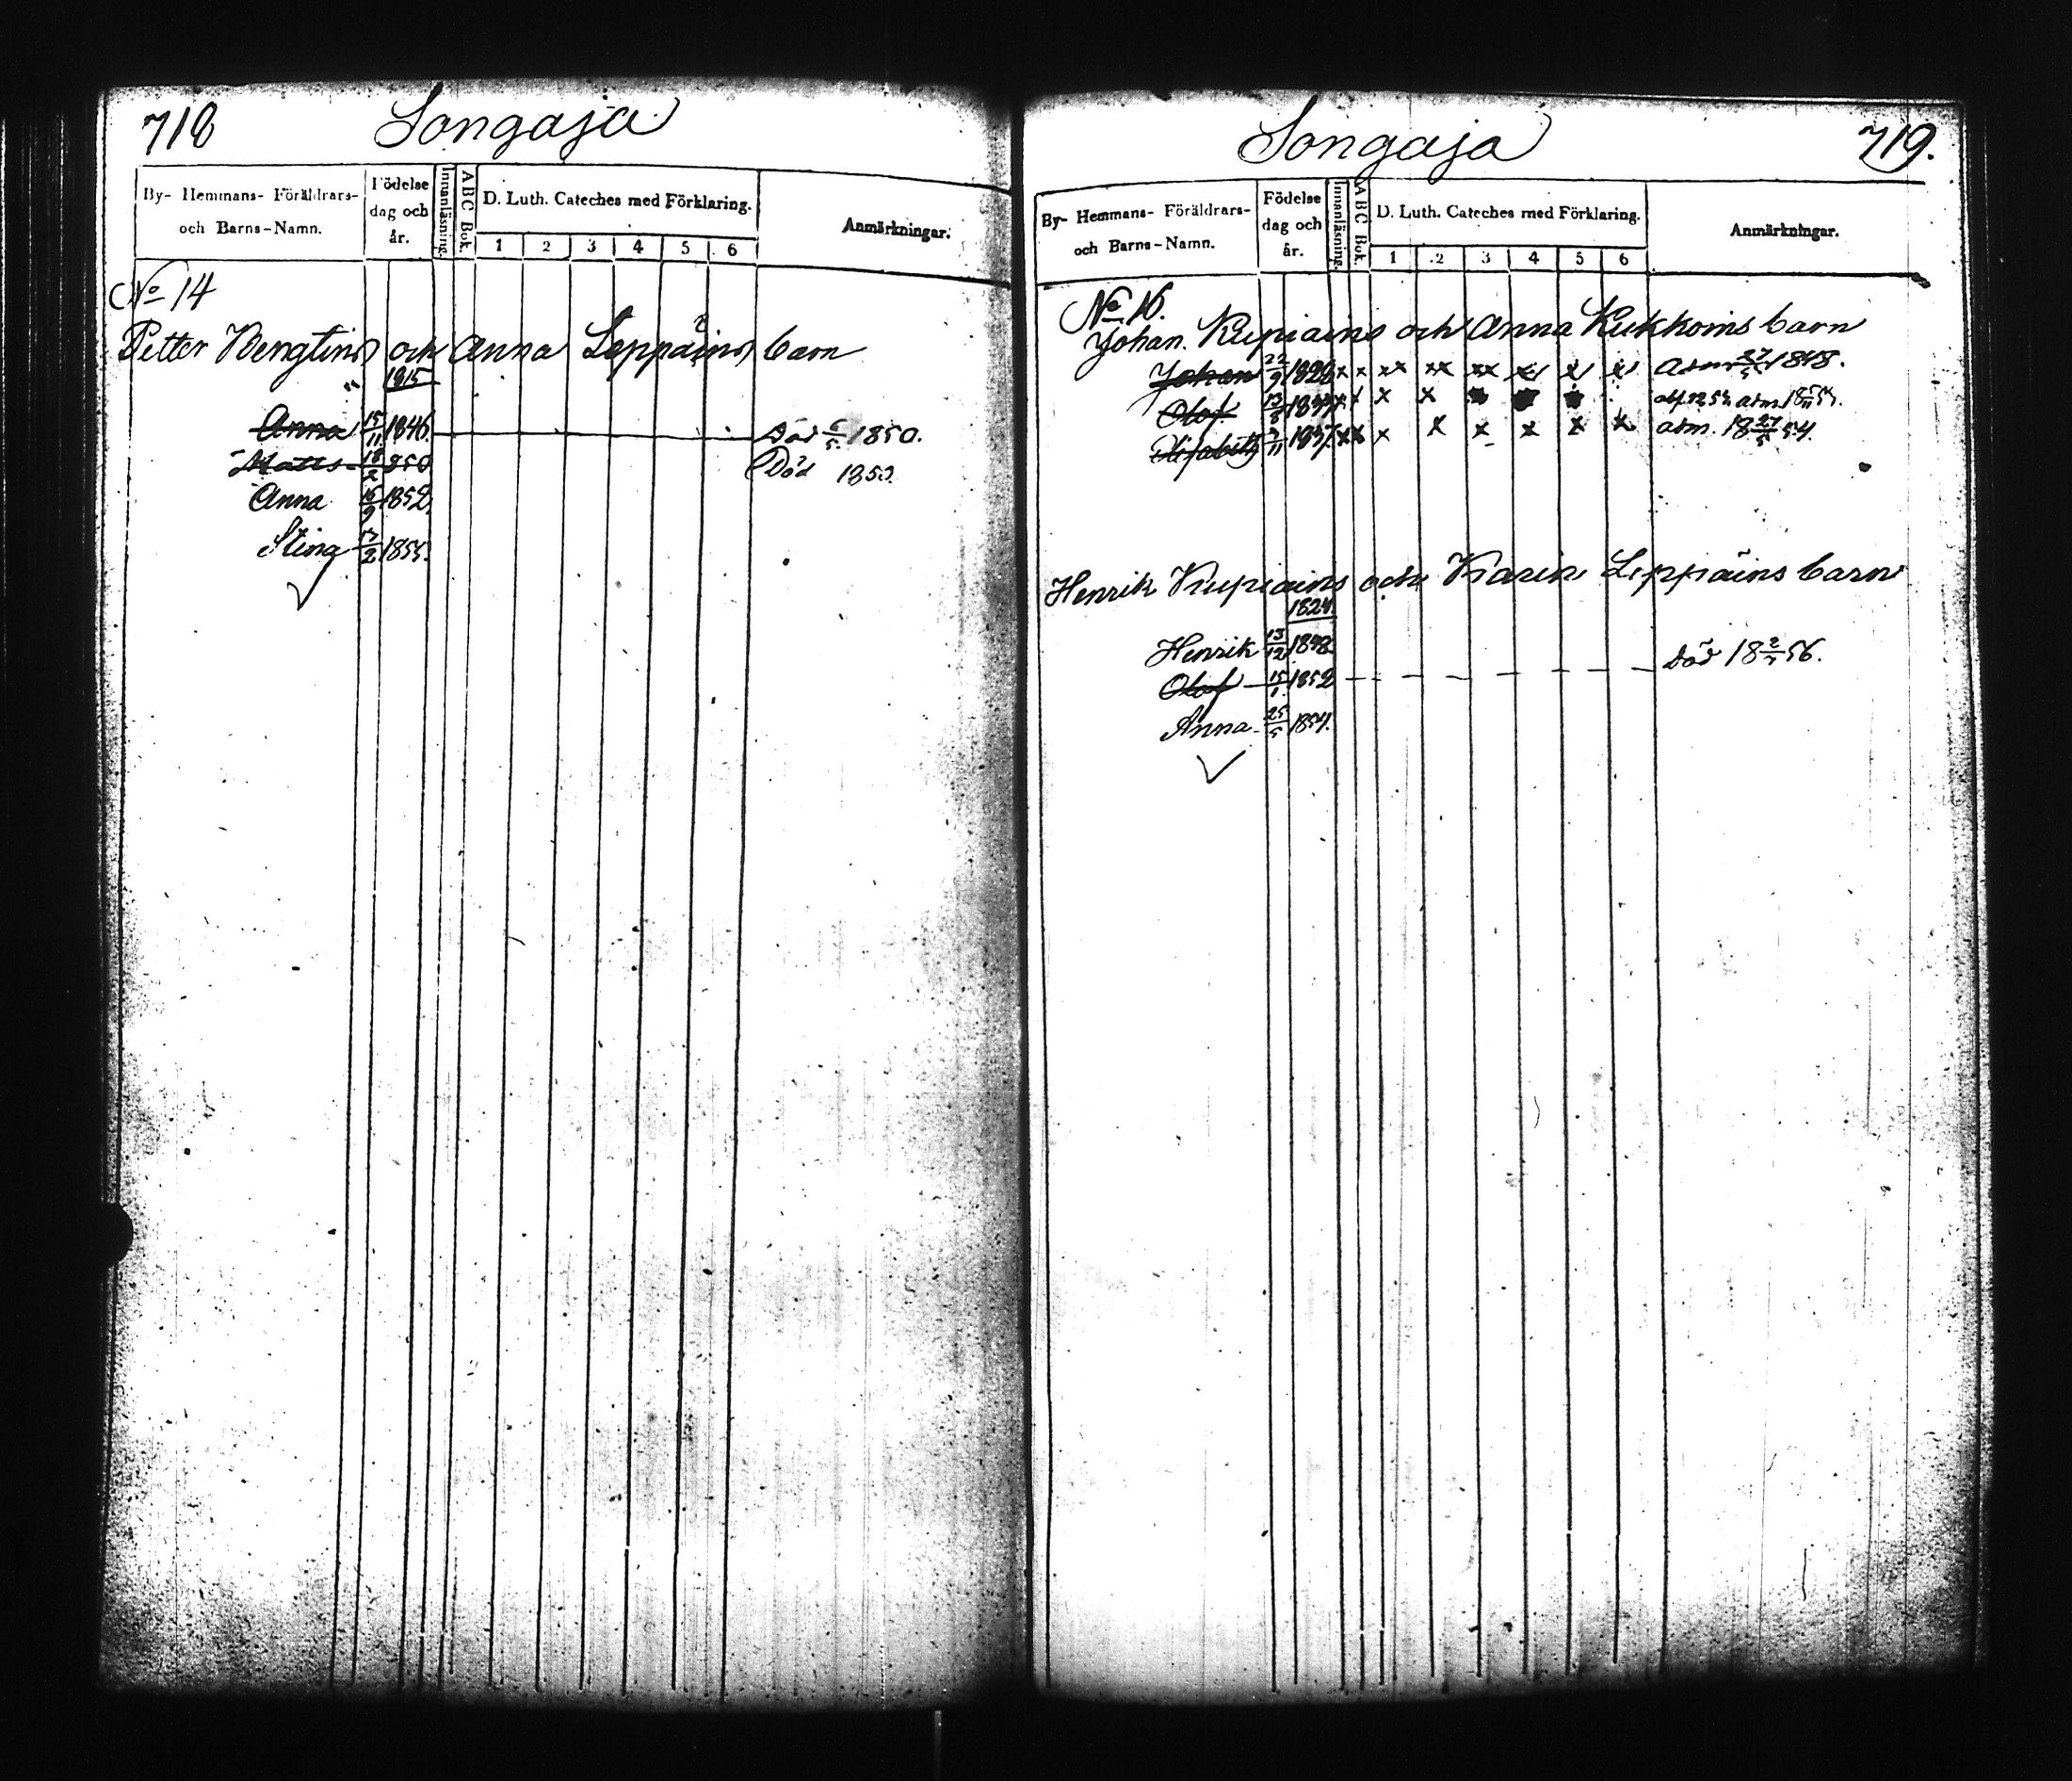 718 Songaja
By- Hemmans- Föräldrars- och Barns-Namn. Födelse dag och år. Innanläsning. ABC Bok. D. Luth. Cateches med Förklaring. 1 2 3 4 5 6 Anmärkningar.
No 14
Petter Bengtins och Anna Leppäins barn
1815
Anna 15/11 1846. Död 5/5 1850.
Matts 18/2 850 Död 1850.
Anna 15/9 1852.
Stina 17/2 1855.
Songaja 719.
By- Hemmans- Föräldrars- och Barns-Namn. Födelse dag och år. Innanläsning. ABC Bok. D. Luth. Cateches med Förklaring. 1 2 3 4 5 6 Anmärkningar.
No 16.
Johan Kupiains och Anna Kukkoins barn
Johan 22/9 1828 x x xx xx xx x x x adm 27/5 1848.
Olof 13/8 x x x adm.
Elisabeth 1837. xx x x x x x x adm. 18 27/5 54.
Henrik Kupiains och Karin Leppäins barn
1824.
Henrik 13/12 1848
Olof 15/1 1852 Död 18 2/5 56.
Anna 25/5 1854.